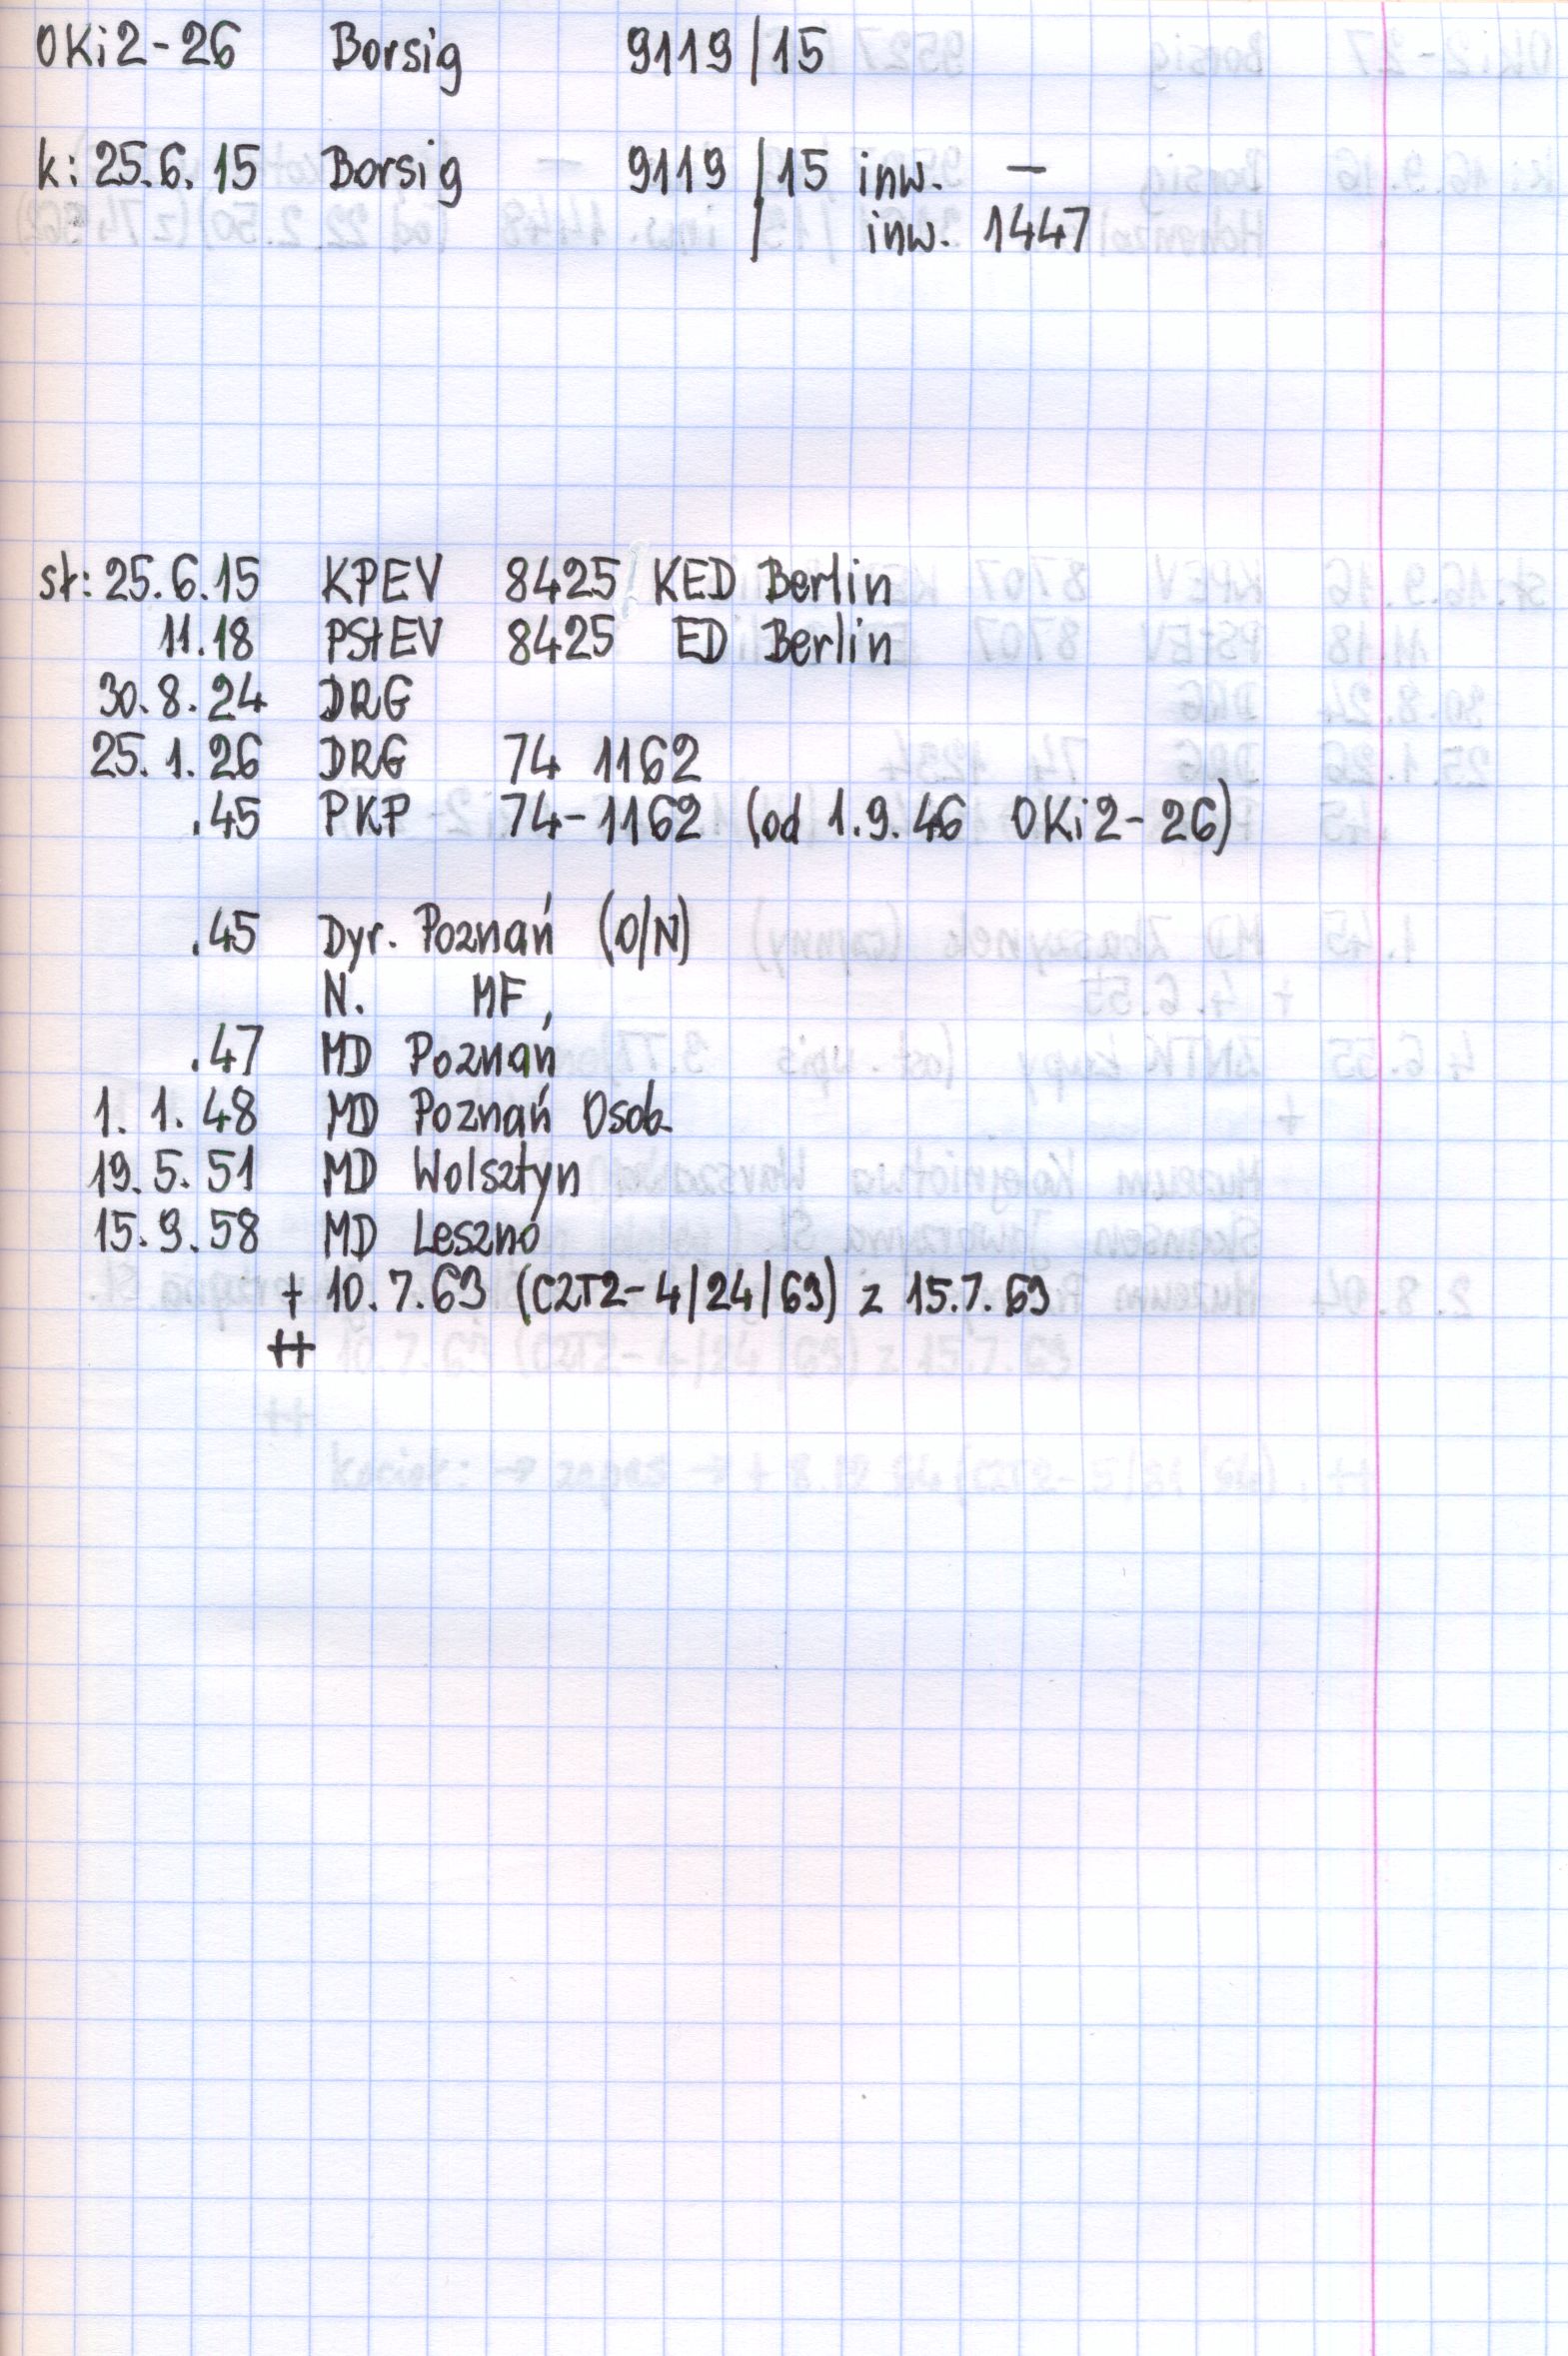 OKi2-26 Borsig 9119/15
k: 25.6.15 Borsig 9119/15 inw. —
/ inw. 1447
st: 25.6.15 KPEV 8425 KED Berlin
11.18 PStEV 8425 ED Berlin
30.8.24 DRG
25.1.26 DRG 74 1162
.45 PKP 74-1162 (od 1.9.46 OKi2-26)
.45 Dyr. Poznań (O/N)
N. MF,
.47 MD Poznań
1.1.48 MD Poznań Osob.
19.5.51 MD Wolsztyn
15.9.58 MD Leszno
+ 10.7.63 (C2T2-4/24/63) z 15.7.63
++